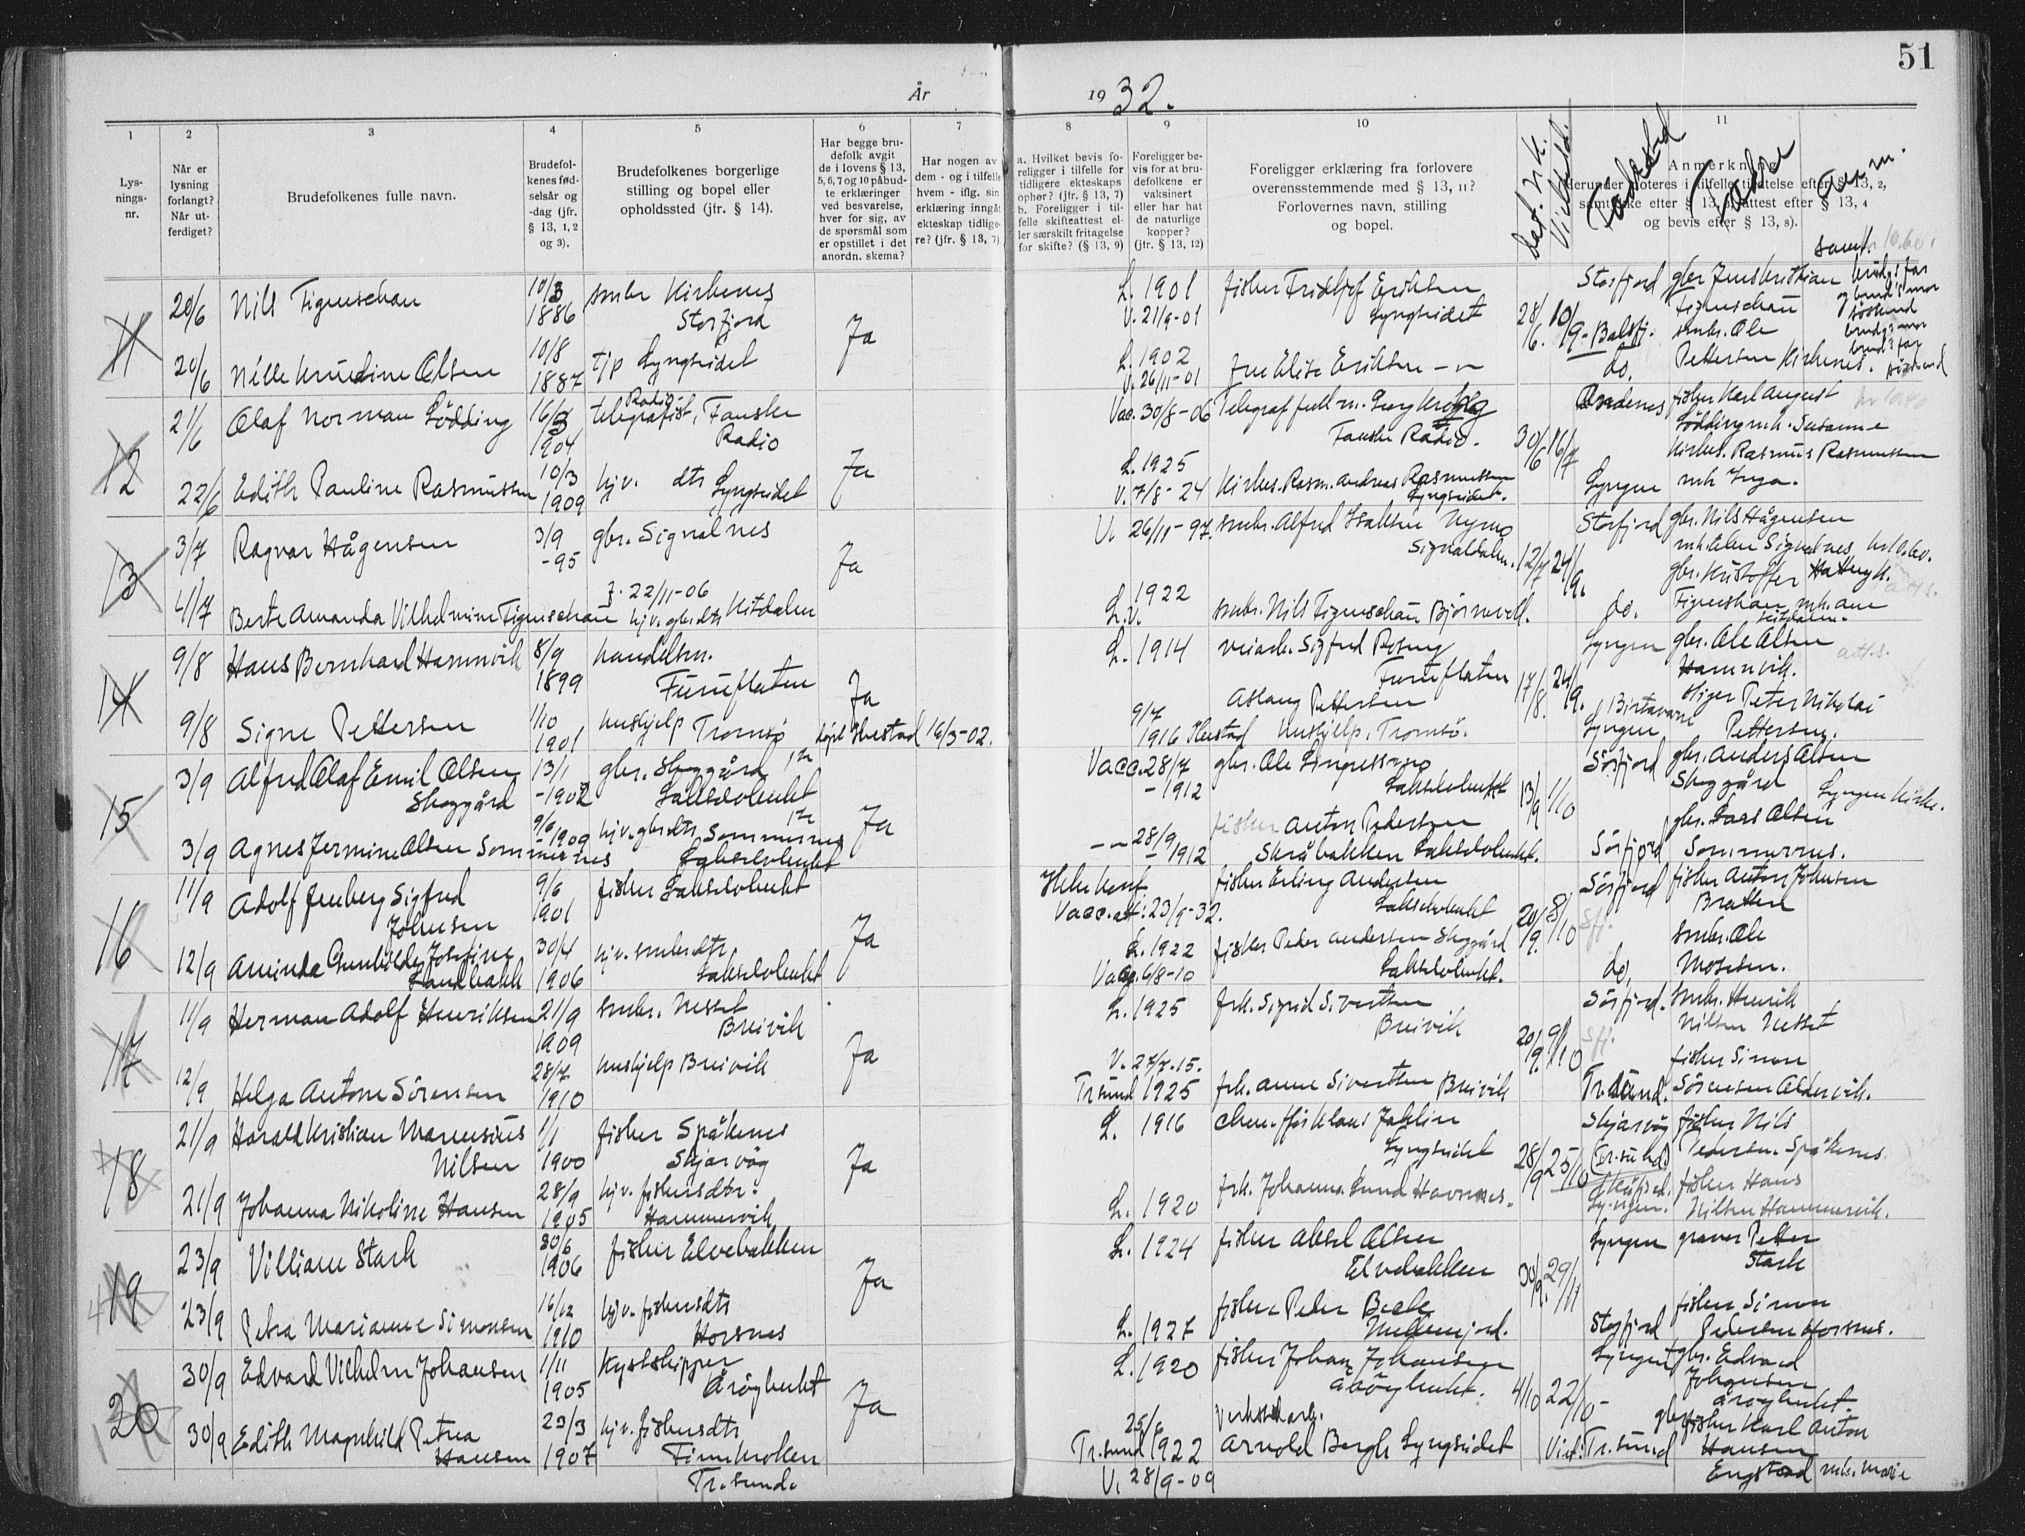 51
År
19 32.
1
2
3
4
5
6
7
8
9
10
11
Lys-
nings-
nr.
Når er
lysning
forlangt?
Når ut-
ferdiget?
Brudefolkenes fulle navn.
Brudefol-
kenes fød-
selsår og
-dag (jfr.
§ 13, 1, 2
og 3).
Brudefolkenes borgerlige
stilling og bopel eller
opholdssted (jfr. § 14).
Har begge bru-
defolk avgit
de i lovens § 13,
5, 6, 7 og 10 påbud-
te erklæringer
ved besvarelse,
hver for sig, av
de spørsmål som
er opstillet i det
anordn. skema?
Har nogen av
dem - og i tilfelle
hvem - iflg. sin
erklæring inngåt
ekteskap tidlige-
re? (jfr. § 13, 7)
a. Hvilket bevis fo-
religger i tilfelle for
tidligere ekteskaps
ophør? (jfr. § 13, 7)
b. Foreligger i til-
felle skifteattest el-
ler særskilt fritagelse
for skifte? (§ 13, 9)
Foreligger be-
vis for at bru-
defolkene er
vaksinert
eller har hat
de naturlige
kopper?
(jfr. § 13, 12)
Foreligger erklæring fra forlovere
overensstemmende med § 13, 11?
Forlovernes navn, stilling
og bopel.
Anmerkning
Herunder noteres i tilfelle tillatelse efter § 13, 2,
samtykke efter § 13, 3, attest efter § 13, 4
og bevis efter § 13, 8).
Fødested
11
20/6
Nils Figenschau
10/3
1886
småbr Kirkenes
Storfjord
Ja
L. 1901
V. 21/9-01
fisker Fridtjof Eriksen
Lyngseidet
28/6.
10/9-Balsfj.
Storfjord
gbr. Jens Kristian
Figenschau
20/6
Nille Krudine Olsen
10/8
1887
tjp Lyngseidet
L. 1902
V. 26/11-01
fru Elise Eriksen - " -
do.
småbr. Ole
Pettersen Kirkenes.
12
21/6
Olaf Norman Lödding
16/3
1904
Radio-
telegrafist, Fauske
Radio
Ja
Vac. 30/8-06
Telegraf fullm. Georg Krogh
Fauske Radio.
30/6
16/7
Andenes
fisker Karl August
Lödding m.h. Susanne
22/6
Edith Pauline Rasmussen
10/3
1909
hjv. dtr Lyngseidet
L. 1925
V. 7/8-24
Kirkes. Rasm. Andreas Rasmussen
Lyngseidet.
Lyngen
Kirkes. Rasmus Rasmussen
mh Inga.
13
3/7
Ragvar Hågensen
3/9
-95
gbr. Signalnes
Ja
V. 26/11-97.
småbr. Alfred Isaksen Nymo
Signaldalen.
12/7
24/9.
Storfjord
gbr. Nils Hågensen
4/7
Berte Amanda Vilhelmine Figenschau
f. 22/11-06
hjv. gbrdtr Kitdalen
L. 1922
L.V.
småbr. Nils Figenschau Bjørnevoll.
do.
gbr. Kristoffer
Figenschau
Kitdalen.
14
9/8
Hans Bernhard Hamnvik
8/9
1899
handelsm.
Furuflaten
Ja
L. 1914
veiarb. Sigfred Rosny
Furuflaten
17/8.
24/9.
Lyngen
gbr. Ole Olsen
Hamnvik.
9/8
Signe Pettersen
1/10
1901
hushjelp Tromsø
döpt Ibestad 16/3-02.
9/7
1916 Ibestad
Aslaug Pettersen
hushjelp, Tromsö.
Birtavarre
Lyngen
Peter Nikolai
Pettersen.
15
3/9
Alfred Olaf Emil Olsen
Skoggård
13/1
-1902
gbr. Skoggård
Lakselvbukt
Ja
Vacc. 28/7
-1912
gbr. Ole Ingressen
Lakselvbukt
13/9
1/10
Sörfjord
gbr. Anders Olsen
Skoggård
Lyngen Kirke.
3/9
Agnes Jermine Olsen Sommernes
9/6
-1909
hjv. gbrdtr, Sommernes
Lakselvbukt
28/9
-1912
fisker Anton Pedersen
Skråbakken Lakselvbukt.
Sörfjord
gbr. Lars Olsen
Sommernes.
16
11/9
Adolf Jenberg Sigfred
Johnsen
9/6
1901
fisker Lakselvbukt
Ja
Vacc. att: 23/9-32.
fisker Erling Andersen
Lakselvbukt
20/9.
8/10
Sfj.
Sörfjord
fisker Anton Johnsen
Bratten
12/9
Aminda Gunhilde Josefine
Sandbakk
30/4
1906
hjv. småbrdtr
Lakselvbukt
L. 1922
Vacc. 6/8-10
fisker Peder Andersen Skoggård
Lakselvbukt.
do.
småbr. Ole
Mosesen.
17
11/9
Herman Adolf Henriksen
21/9
1909
småbr. Nesset
Breivik
Ja
L. 1925
frk. Sigrid Sivertsen
Breivik
20/9.
9/10
Sfj.
Sörfjord.
småbr. Henrik
Nilsen Nesset
12/9
Helga Antone Sörensen
28/7
1910
hushjelp Breivik
V. 27/7-15.
Tr.sund 1925
frk. Anne Sivertsen Breivik
Tr.sund.
fisker Simon
Sörensen Aldervik.
18
21/9
Harald Kristian Marensius
Nilsen
1/1
1900
fisker Spåkenes
Skjærvög
Ja
L. 1916
Klaus Johlin
Lyngseidet
28/9
25/10
(Tr.sund)
Skjærvög
fisker Nils
Pedersen Spåkenes
21/9
Johanna Nikoline Hansen
28/9
1905
hjv. fiskersdtr.
Hammervik
L. 1920
frk. Johanna Lund Havnnes.
Lyngen.
fisker Hans
Nilsen Hammervik.
19
23/9
William Stark
30/6
1906
fisker Elvebakken
Ja
L. 1924
fisker Aksel Olsen
Elvebakken
30/9.
29/11
Lyngen
graver Petter
Stark
23/9
Petra Marianne Simonsen
16/12
1910
hjv. fiskersdtr
Horsnes
L. 1927
fisker Peder Beck
Storfjord
fisker Simon
Pedersen Horsnes.
20
30/9
Edvard Vilhelm Johansen
1/11
1905
Kystskipper
Åröybukt
Ja
L. 1920
fisker Johan Johansen
Åröybukt.
4/10
22/10-
Lyngen
gbr. Edvard
Johansen
Åröybukt.
30/9
Edith Magnhild Petrea
Hansen
23/3
1907
hjv. fiskersdtr
Finnkroken
Tr.sund.
25/6
Tr.sund 1922
V. 28/9-09
Verkst.arb.
Arnold Bergh Lyngseidet
Viet: Tr.sund
fisker Karl Anton
Hansen
Engstad mh. Marie